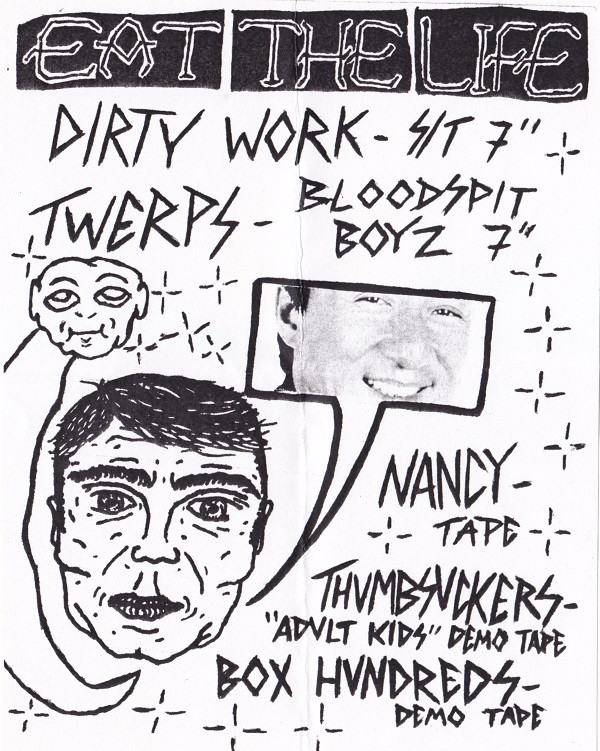 EAT THE LIFE
DIRTY WORK - S/T 7"
TWERPS - BLOODSPIT
BOYZ 7"
NANCY -
TAPE
THUMBSUCKERS -
"ADULT KIDS" DEMO TAPE
BOX HUNDREDS -
DEMO TAPE